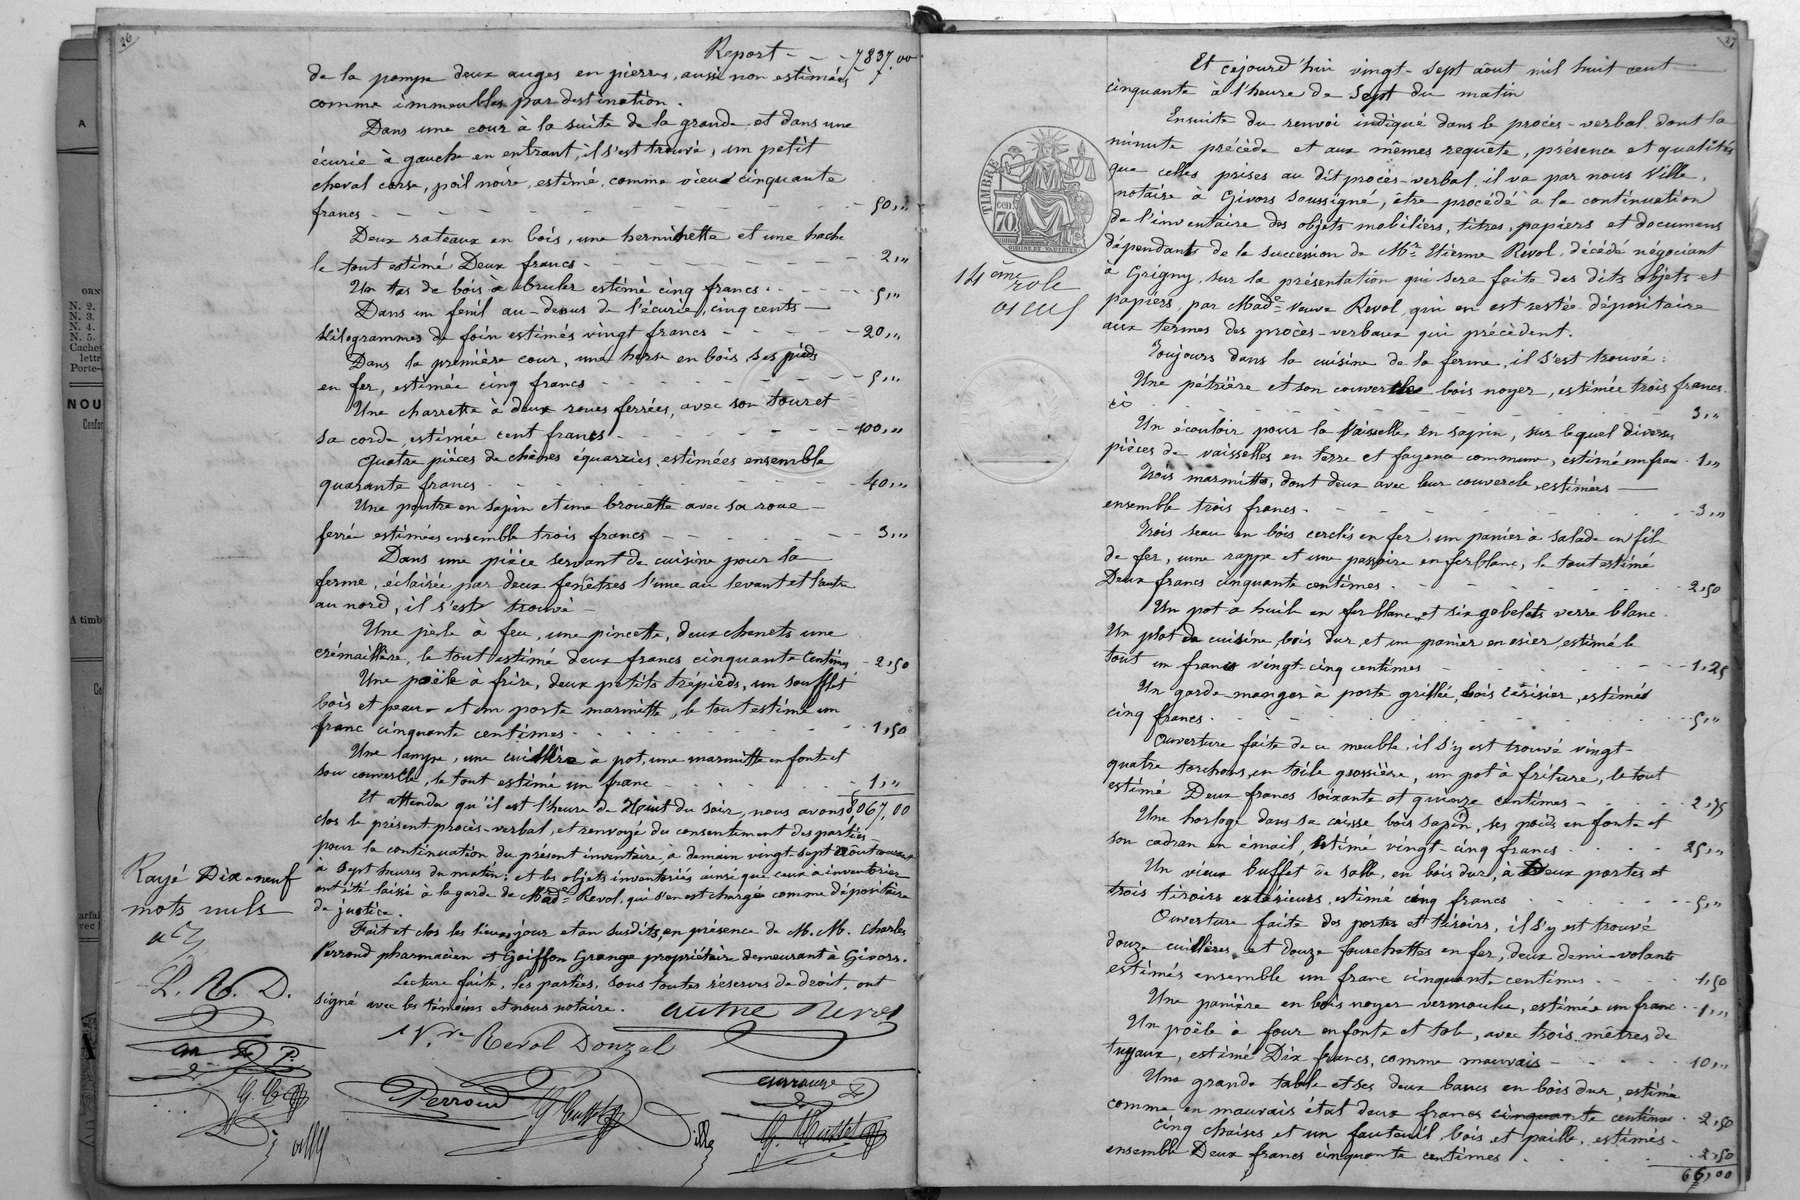 26
Report - - - 7837,00
de la pompe deux auges en pierres, aussi non estimées
comme immeubles par destination.
Dans une cour à la suite de la grande et dans une
écurie à gauche en entrant, il s'est trouvé, un petit
cheval corse, poil noire, estimé, comme vieux cinquante
francs - - - 50,"
Deux rateaux en bois, une herminette et une hache
le tout estimé Deux francs - - - 2,"
Un tas de bois à bruler estimé cinq francs - - - 5,"
Dans un fenil au-dessus de l'écurie, cinq cents
Kilogrammes de foin estimés vingt francs - - - 20,"
Dans la première cour, une herse en bois, ses pieds
en fer, estimée cinq francs - - - 5,"
Une charrette à deux roues ferrées, avec son touret
sa corde, estimée cent francs - - - 100,"
Quatre pièces de chênes équarries, estimées ensemble
quarante francs - - - 40,"
Une poutre en sapin et une brouette avec sa roue
ferrée estimées ensemble trois francs - - - 3,"
Dans une pièce servant de cuisine pour la
ferme, éclairée par deux fenêtres l'une au levant et l'autre
au nord, il s'est trouvé
Une pèle à feu, une pincette, deux chenets une
crémaillère, le tout estimé deux francs cinquante centimes - 2,50
Une poële à frire, deux petits trépieds, un soufflet
bois et peau et un porte marmitte, le tout estimé un
franc cinquante centimes - - - 1,50
Une lampe, une cuillère à pot, une marmitte en fonte et
son couvercle, le tout estimé un franc - - - 1,"
8,067,00
Et attendu qu'il est l'heure de Huit du soir, nous avons
clos le présent procès-verbal, et renvoyé du consentement des parties
pour la continuation du présent inventaire, à demain vingt-sept août courant
à Sept heures du matin; et les objets inventoriés ainsi que ceux à inventorier
ont été laissé à la garde de Made Revol, qui s'en est chargée comme dépositaire
de justice.
Fait et clos les lieux jour et an susdits, en présence de M.M. Charles
Perroud pharmacien et Goiffon Grange propriétaire demeurant à Givors.
Lecture faite, les parties, sous toutes réserves de droit, ont
signé avec les témoins et nous notaire.
Rayé Dix-neuf
mots nuls
Vve Revol Donzel
Perroud
27
Et cejourd'hui vingt-sept août mil huit cent
cinquante à l'heure de Sept du matin
Ensuite du renvoi indiqué dans le procès-verbal dont la
minute précède et aux mêmes requête, présence et qualités
que celles prises au dit procès-verbal, il va par nous Ville,
notaire à Givors soussigné, être procédé à la continuation
de l'inventaire des objets mobiliers, titres, papiers et documens
dépendant de la succession de Mr. Etienne Revol, décédé négociant
à Grigny, sur la présentation qui sera faite des dits objets et
papiers, par Made veuve Revol, qui en est restée dépositaire
aux termes des procès-verbaux qui précèdent.
TIMBRE
70 cen
14 ème role
Toujours dans la cuisine de la ferme, il s'est trouvé:
Une pétrière et son couvercle bois noyer, estimée trois francs
ci - - - 3,"
Un écouloir pour la vaisselle, en sapin, sur lequel diverses
pièces de vaisselles en terre et fayence commune, estimé un franc - 1,"
Trois marmittes, dont deux avec leur couvercle, estimées
ensemble trois francs - - - 3,"
Trois seau en bois cerclés en fer, un panier à salade en fil
de fer, une rappe et une passoire en ferblanc, le tout estimé
Deux francs cinquante centimes - - - 2,50
Un pot à huile en fer blanc et six gobelets verre blanc.
Un plot de cuisine, bois dur, et un panier en osier, estimé le
tout un franc vingt-cinq centimes - - - 1,25
Un garde manger à porte grillée, bois cerisier, estimé
cinq francs - - - 5,"
Ouverture faite de ce meuble, il s'y est trouvé vingt-
quatre torchons, en toile grossière, un pot à friture, le tout
estimé Deux francs soixante et quinze centimes - - - 2,75
Une horloge dans sa caisse bois sapin, ses poids en fonte et
son cadran en émail, estimé vingt-cinq francs - - - 25,"
Un vieux buffet de salle, en bois dur, à Deux portes et
trois tiroirs extérieurs, estimé cinq francs - - - 5,"
Ouverture faite des portes et tiroirs, il s'y est trouvé
douze cuillères et douze fourchettes en fer, deux demi-volants
estimés ensemble un franc cinquante centimes - - - 1,50
Une panière en bois noyer vermoulue, estimée un franc - 1,"
Un poêle à four en fonte et tole, avec trois mêtres de
tuyaux, estimé Dix francs, comme mauvais - - - 10,"
Une grande table et ses deux bancs en bois dur, estimé
comme en mauvais état deux francs cinquante centimes - 2,50
Cinq chaises et un fauteuil, bois et paille, estimés
ensemble Deux francs cinquante centimes - - - 2,50
66,00